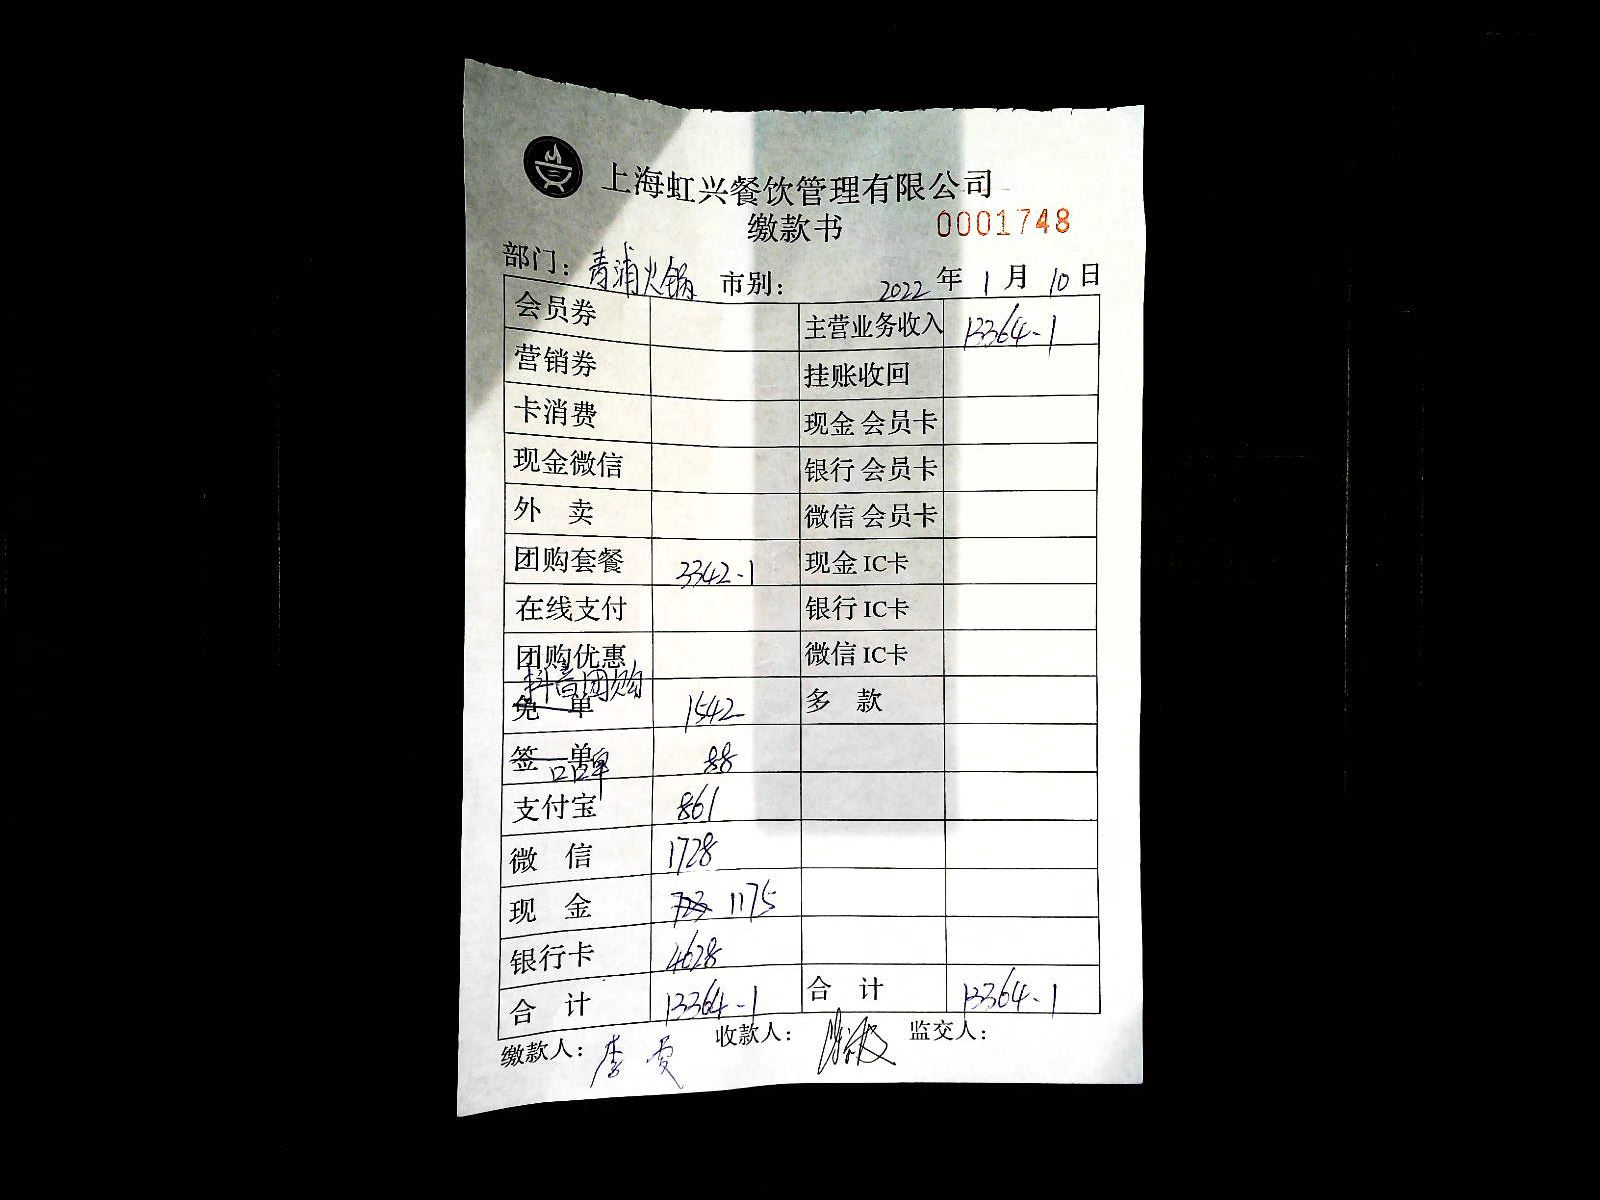 上海虹兴餐饮管理有限公司
缴款书 0001748
部门: 青浦火锅 市别: 2022 年 1 月 10 日
会员券 主营业务收入 13364-1
营销券 挂账收回
卡消费 现金 会员卡
现金微信 银行 会员卡
外 卖 微信 会员卡
团购套餐 3342-1 现金 IC卡
在线支付 银行 IC卡
团购优惠 微信 IC卡
抖音团购
免 单 1542 多 款
签 单 88
口口单
支付宝 861
微 信 1728
现 金 723 1175
银行卡 4628
合 计 13364-1 合 计 13364-1
缴款人: 李 收款人: 监交人: